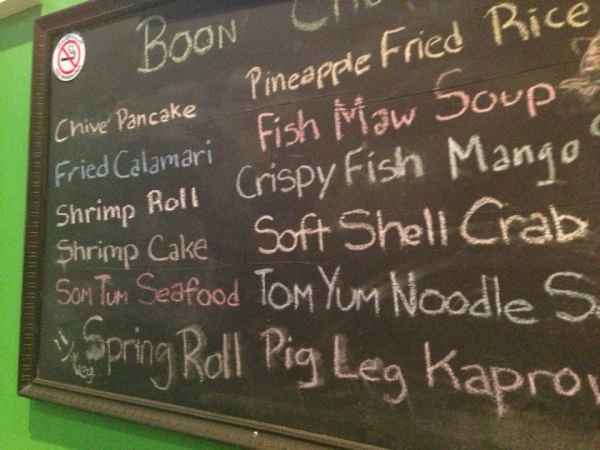 BOON
Chive Pancake
Fried Calamari
Shrimp Roll
Shrimp Cake
Som Tum Seafood
Veg. Spring Roll
Pineapple Fried Rice
Fish Maw Soup
Crispy Fish Mango
Soft Shell Crab
Tom Yum Noodle
Pig Leg